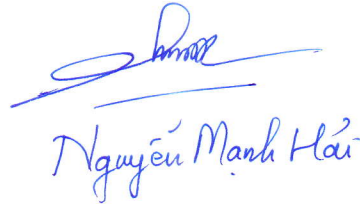 Nguyễn Mạnh Hải